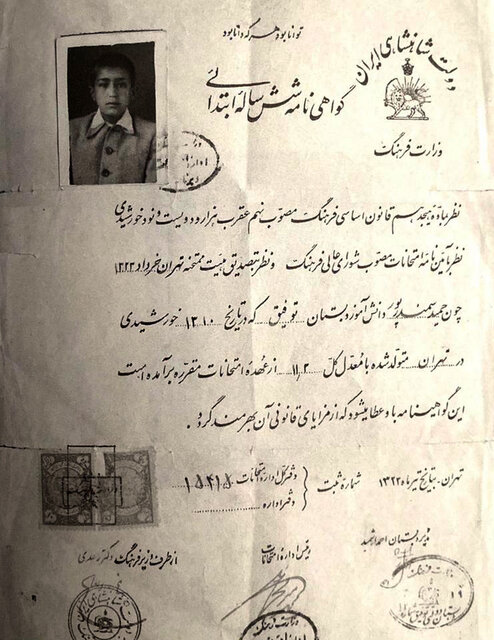 توانا بود هر که دانا بود
دولت شاهنشاهی ایران
گواهی نامه شش ساله ابتدائی
وزارت فرهنگ
نظر بماده هیجدهم قانون اساسی فرهنگ مصوب نهم عقرب هزار و دویست و نود خورشیدی
نظر بآئین نامه امتحانات مصوب شورای عالی فرهنگ و نظر بتصدیق هیئت ممتحنه تهران خرداد ۱۳۲۳
چون حمید سمندرپور دانش آموز دبستان توفیق که در تاریخ ۱۳۱۰ خورشیدی
در تهران متولد شده با معدل کل ۱۱٫۲ از عهده امتحانات مقرره برآمده است
این گواهینامه باو عطا میشود که از مزایای قانونی آن بهره مند گردد.
تهران. بتاریخ تیر ماه ۱۳۲۳ شماره ثبت دفتر کل اداره امتحانات
دفتر اداره
مدیر دبستان رئیس اداره امتحانات از طرف وزیر فرهنگ دکتر